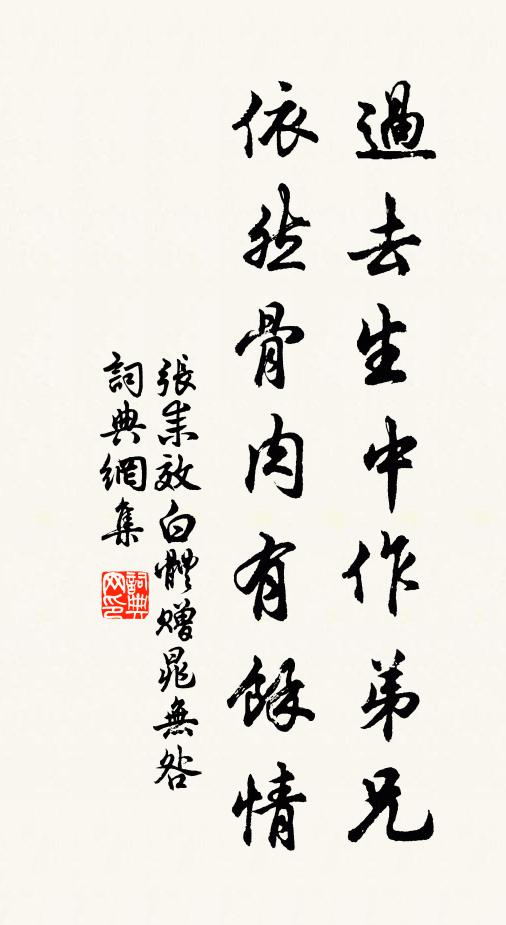 過去生中作弟兄
依然骨肉有餘情
張耒效白體贈晁無咎
詞典網集
詞典网印